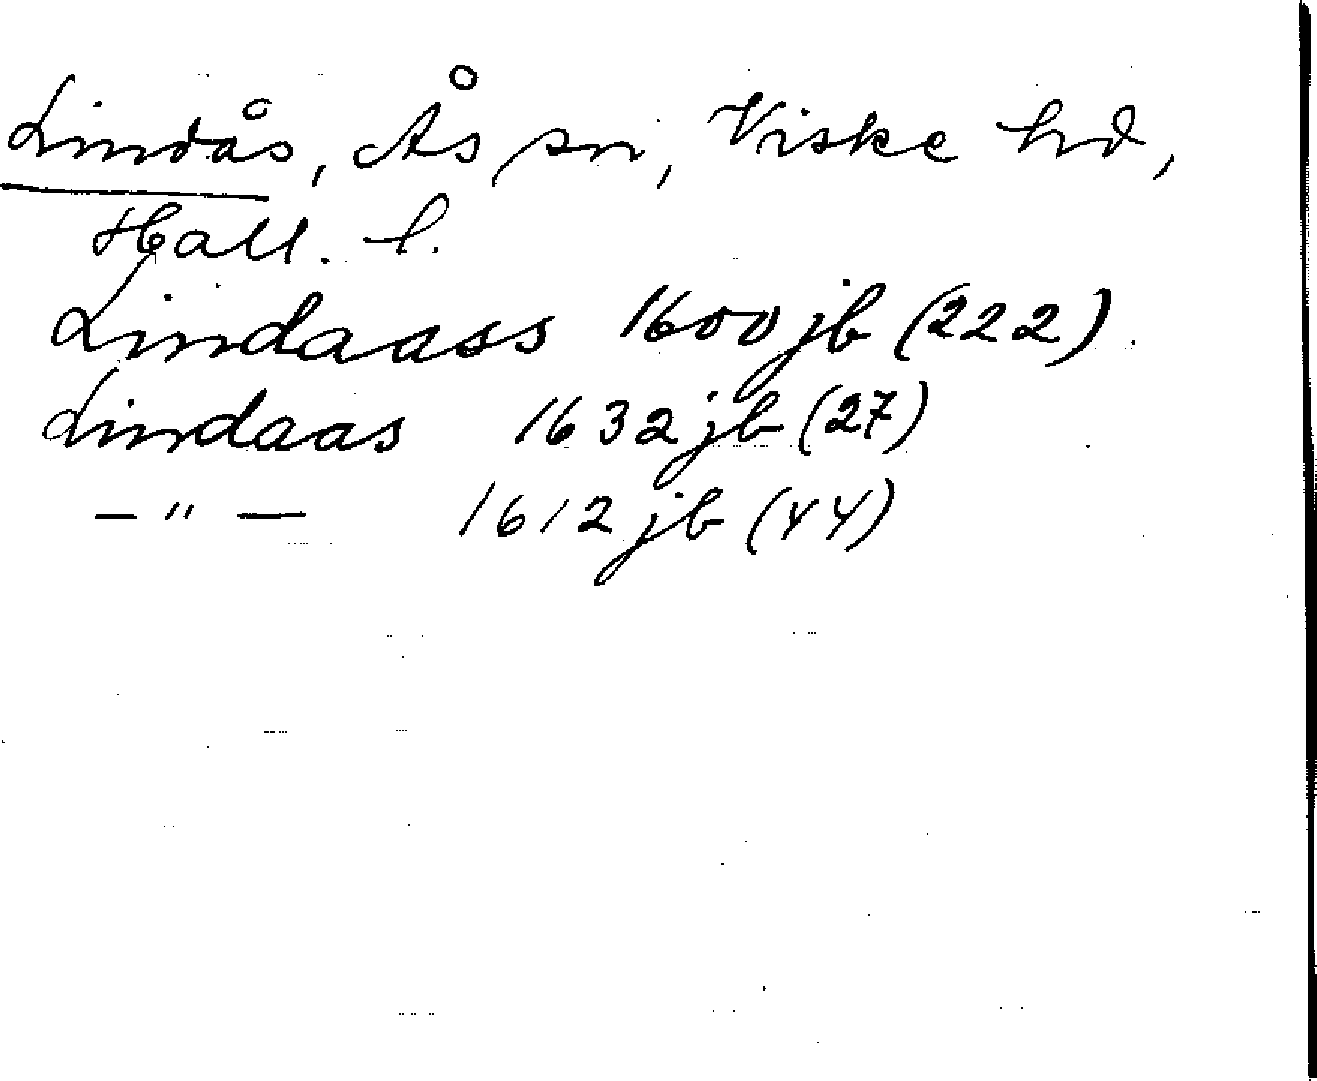 Lindås, Ås sn, Viske hd,
Hall. l.
Lindaass 1600 jb (222).
Lindaas 1632 jb (27)
— " — 1612 jb (44)